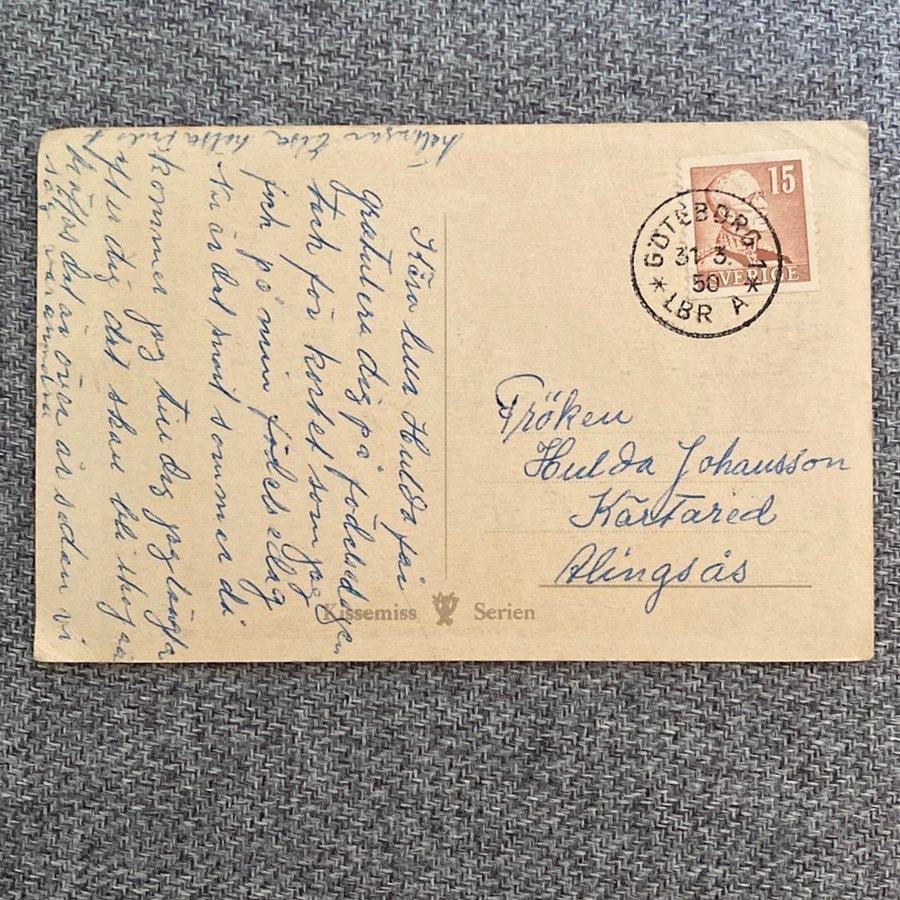 Kära lilla Hulda får
gratulera dig på födelsedagen
tack för kortet som jag
fick på min födelsedag
nu är det snart sommer då
kommer jag till dig jag längtar
efter dig det skall bli
det är över år sedan vi
såg varandra
hälsningar Elsa hälsa
15
SVERIGE
GÖTEBORG 1
31. 3.
50
* LBR A *
Fröken
Hulda Johansson
Kärtared
Alingsås
Kissemiss Serien